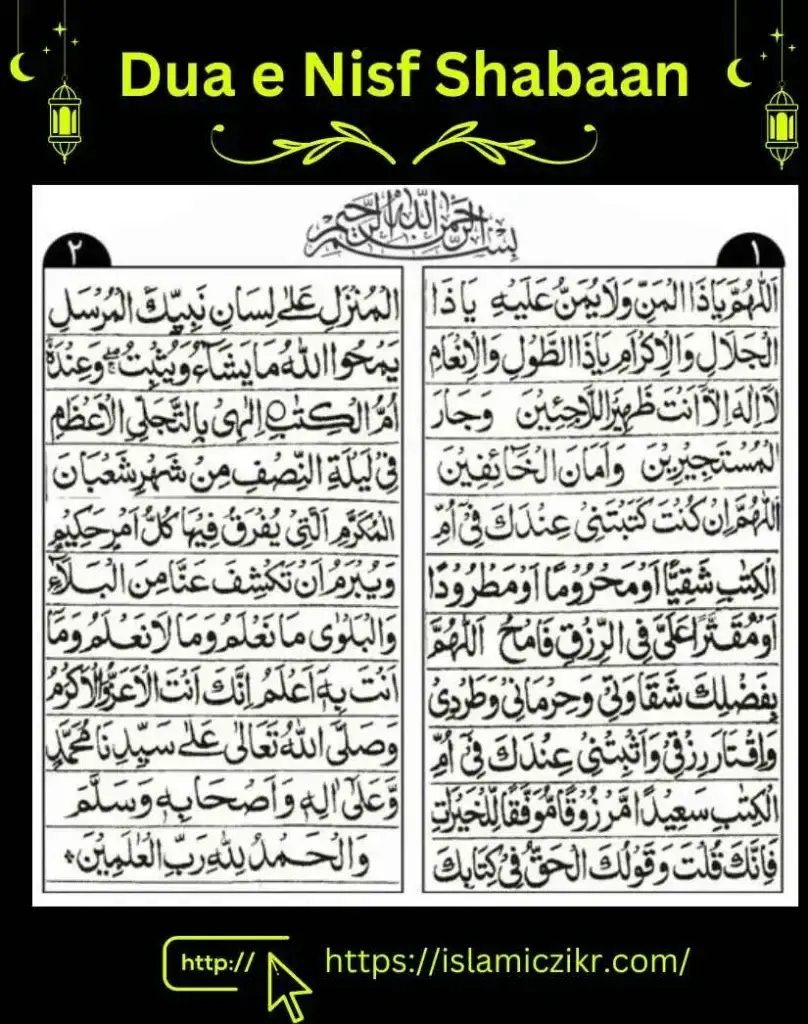 Dua e Nisf Shabaan
بِسْمِ اللهِ الرَّحْمٰنِ الرَّحِيْمِ
١
اَللّٰهُمَّ يَا ذَا الْمَنِّ وَلَا يُمَنُّ عَلَيْهِ يَا ذَا
الْجَلَالِ وَالْاِكْرَامِ يَا ذَا الطَّوْلِ وَالْاِنْعَامِ
لَا اِلٰهَ اِلَّا اَنْتَ ظَهِيْرُ اللَّاجِئِيْنَ وَجَارُ
الْمُسْتَجِيْرِيْنَ وَاَمَانَ الْخَائِفِيْنَ
اَللّٰهُمَّ اِنْ كُنْتَ كَتَبْتَنِيْ عِنْدَكَ فِيْ اُمِّ
الْكِتٰبِ شَقِيًّا اَوْ مَحْرُوْمًا اَوْ مَطْرُوْدًا
اَوْ مُقَتَّرًا عَلَيَّ فِي الرِّزْقِ فَامْحُ اَللّٰهُمَّ
بِفَضْلِكَ شَقَاوَتِيْ وَحِرْمَانِيْ وَطَرْدِيْ
وَاقْتَارَ رِزْقِيْ وَاَثْبِتْنِيْ عِنْدَكَ فِيْ اُمِّ
الْكِتٰبِ سَعِيْدًا مَّرْزُوْقًا مُّوَفَّقًا لِّلْخَيْرَاتِ
فَاِنَّكَ قُلْتَ وَقَوْلُكَ الْحَقُّ فِيْ كِتَابِكَ
٢
الْمُنَزَّلِ عَلٰى لِسَانِ نَبِيِّكَ الْمُرْسَلِ
يَمْحُوا اللهُ مَا يَشَآءُ وَيُثْبِتُ ۖ وَعِنْدَهٗ
اُمُّ الْكِتٰبِ ۝ اِلٰهِيْ بِالتَّجَلِّي الْاَعْظَمِ
فِيْ لَيْلَةِ النِّصْفِ مِنْ شَهْرِ شَعْبَانَ
الْمُكَرَّمِ الَّتِيْ يُفْرَقُ فِيْهَا كُلُّ اَمْرٍ حَكِيْمٍ
وَيُبْرَمُ اَنْ تَكْشِفَ عَنَّا مِنَ الْبَلَآءِ
وَالْبَلْوٰى مَا نَعْلَمُ وَمَا لَا نَعْلَمُ وَمَا
اَنْتَ بِهٖ اَعْلَمُ اِنَّكَ اَنْتَ الْاَعَزُّ الْاَكْرَمُ
وَصَلَّى اللهُ تَعَالٰى عَلٰى سَيِّدِنَا مُحَمَّدٍ
وَّعَلٰى اٰلِهٖ وَاَصْحَابِهٖ وَسَلَّمَ
وَالْحَمْدُ لِلّٰهِ رَبِّ الْعٰلَمِيْنَ
http://
https://islamiczikr.com/